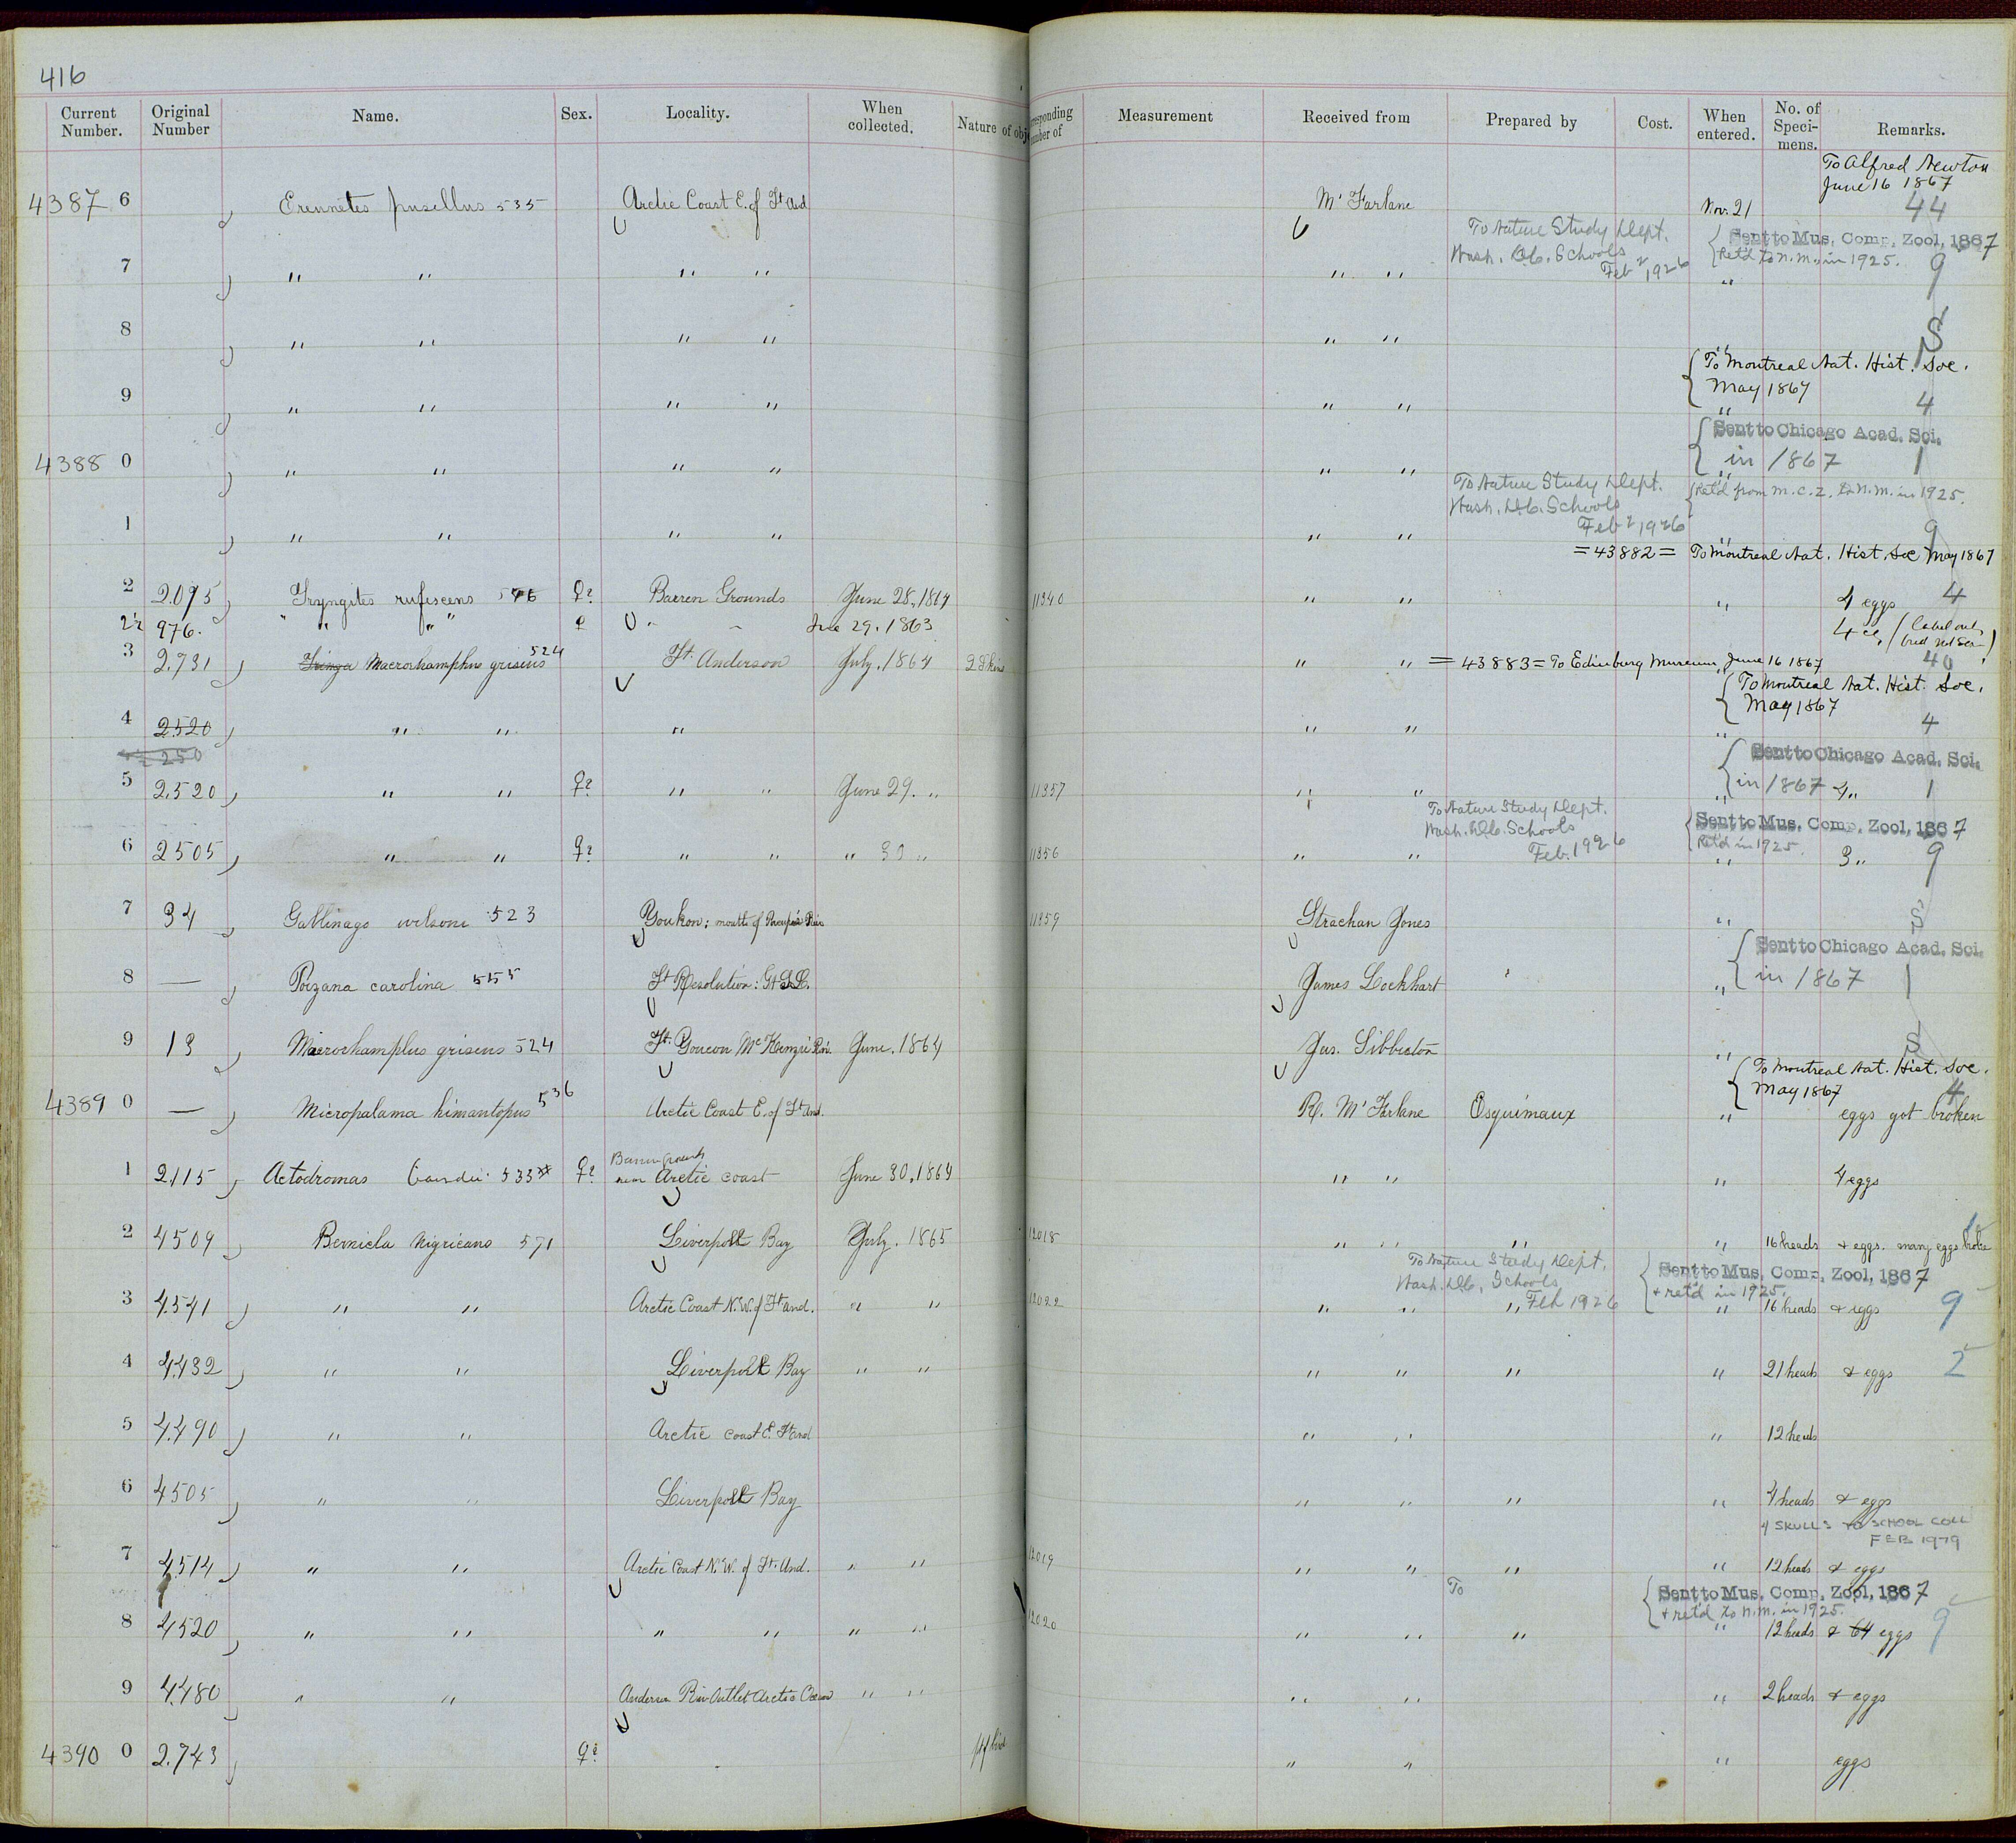 416
Current Number. Original Number Name. Sex. Locality. When collected. Nature of obj
responding mber of Measurement Received from Prepared by Cost. When entered. No. of Speci-mens. Remarks.
To Alfred Newton
June 16 1867
4387 6 Ereunetes pusillus 535 Arctic Coast E. of Ft And McFarlane Nov. 21 44
To Nature Study Dept. Sent to Mus. Comp. Zool. 1867
Wash. D.C. Schools Ret'd to N.M. in 1925.
Feb 2, 1926
7 " " " " " " " 9
8 " " " " " " " S
To Montreal Nat. Hist. Soc.
May 1867
9 " " " " " " " 4
Sent to Chicago Acad. Sci.
in 1867
4388 0 " " " " " " " 1
To Nature Study Dept. Ret'd from M.C.Z. to N.M. in 1925.
Wash. D.C. Schools
Feb 2, 1926
1 " " " " " " " 9
= 43882 = To Montreal Nat. Hist. Soc May 1867
2 2.095 Tryngites rufescens 546 ♀? Barren Grounds June 28, 1864 11340 " " " 4 eggs 4
2½ 976. " " " ♀ " " June 29. 1863 4
3 2.731 Tringa Macrorhamphus griseus 524 Ft. Anderson July. 1864 2 Skins " " = 43883 = To Edinburg Museum, June 16 1867 40
To Montreal Nat. Hist. Soc.
May 1867
4 2520 " " " " " " 4
250
Sent to Chicago Acad. Sci.
in 1867
5 2.520 " " ♀? " " June 29. " 11357 " " " 4 " 1
To Nature Study Dept. Sent to Mus. Comp. Zool. 1867
Wash. D.C. Schools Ret'd in 1925
Feb. 1926
6 2505 " " ♀? " " " 30 " 11356 " " " 3 " 9
7 34 Gallinago wilsoni 523 Youkon; mouth of Porcupine River 11359 Strachan Jones " S
Sent to Chicago Acad. Sci.
in 1867
8 — Porzana carolina 555 Ft Resolution: Gt S. L. James Lockhart " 1
9 13 Macrorhamphus griseus 524 Ft. Youcon McKenzie Riv. June. 1864 Jas. Sibbiston " S
To Montreal Nat. Hist. Soc.
May 1867 4
4389 0 — Micropalama himantopus 536 Arctic Coast E. of Ft And. R. McFarlane Esquimaux " eggs got broken
1 2,115 Actodromas bairdii 533 ♀? Barren Grounds near Arctic coast June 30, 1864 " " " 4 eggs
2 4509 Bernicla nigricans 571 Liverpool Bay July. 1865 12018 " " " " 16 heads & eggs. many eggs broke 1
To Nature Study Dept. Sent to Mus. Comp. Zool. 1867
Wash. D.C. Schools + ret'd in 1925.
Feb 1926
3 4541 " " Arctic Coast N.W. of Ft And. " " 12022 " " " " 16 heads & eggs 9
4 4.432 " " Liverpool Bay " " " " " " 21 heads & eggs 2
5 4.490 " " Arctic coast E. Ft And " " " 12 heads
6 4505 " " Liverpool Bay " " " " 4 heads & eggs
4 SKULLS TO SCHOOL COLL
FEB 1979
7 4.514 " " Arctic Coast N.W. of Ft. And. " " 12019 " " " " 12 heads & eggs
To Sent to Mus. Comp. Zool. 1867
+ ret'd to N.M. in 1925.
8 4520 " " " " " " 12020 " " " " 12 heads & 64 eggs 9
9 4.480 " " Anderson Riv Outlet Arctic Ocean " " " " " 2 heads & eggs
4390 0 2.743 ♀? pt of bird " " " eggs